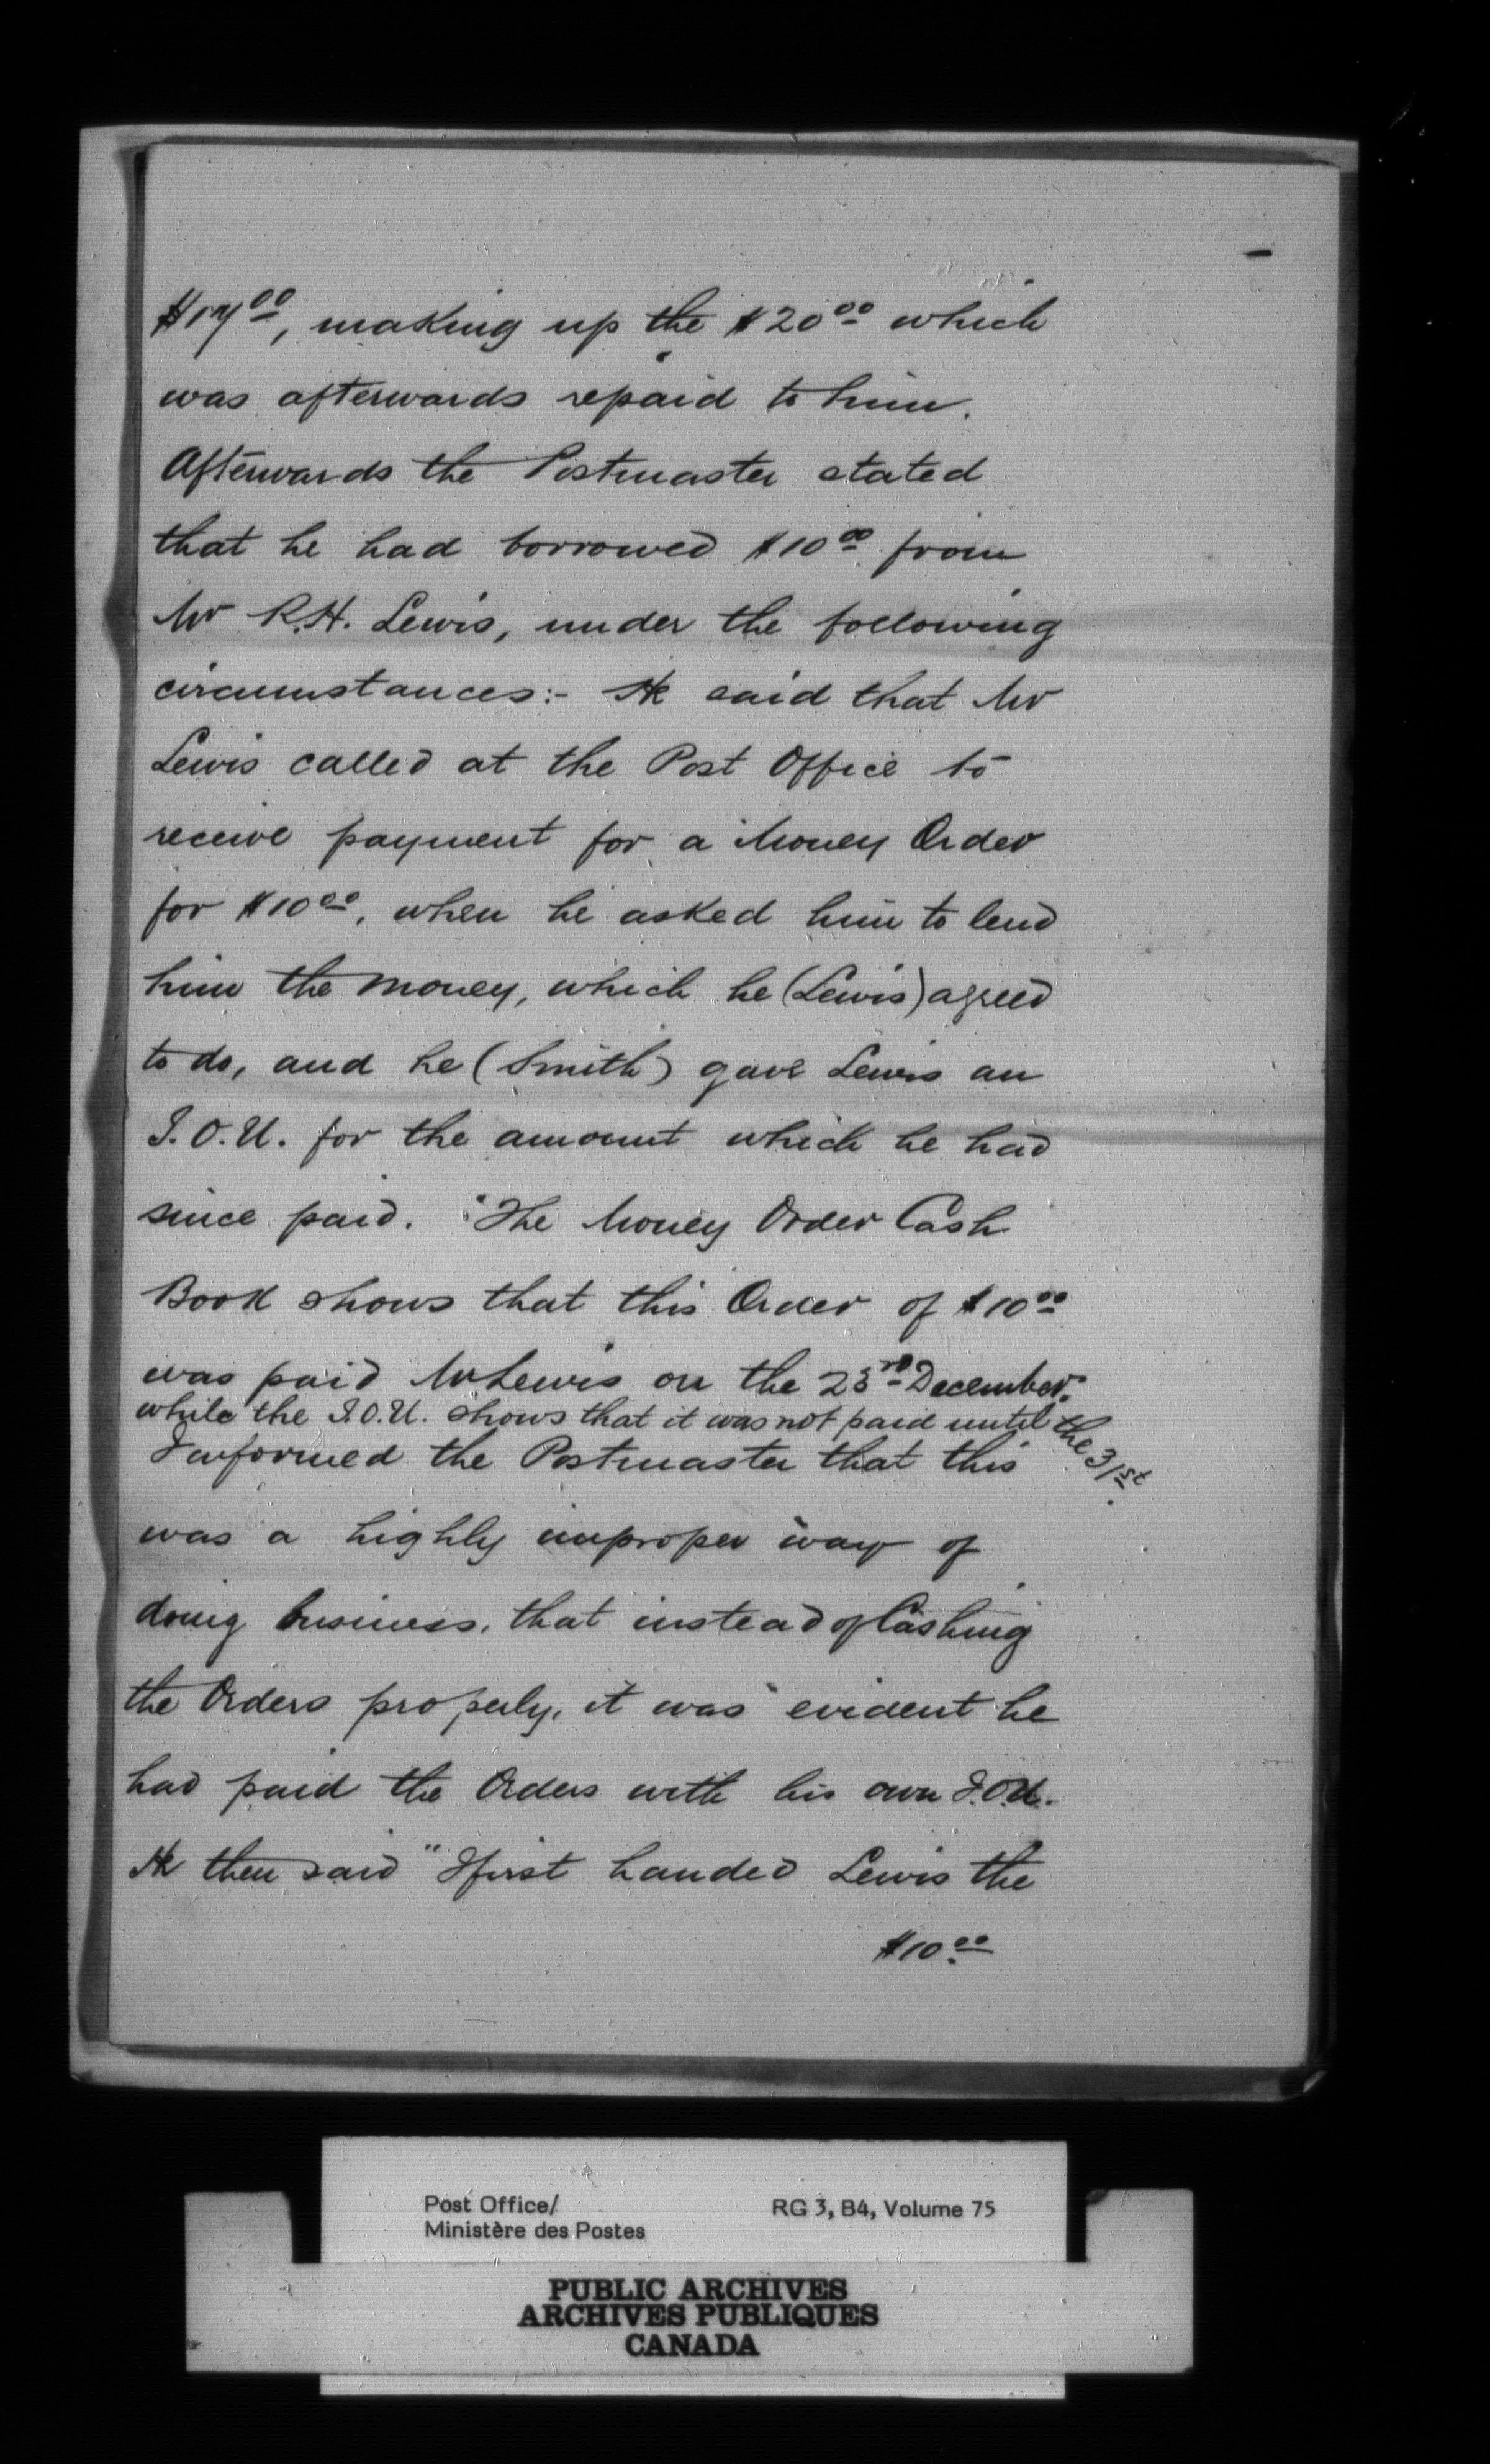 $17.00, making up the $20.00 which
was afterwards repaid to him.
Afterwards the Postmaster stated
that he had borrowed $10.00 from
Mr R.H. Lewis, under the following
circumstances:- He said that Mr
Lewis called at the Post Office to
receive payment for a Money Order
for $10.00, when he asked him to lend
him the money, which he (Lewis) agreed
to do, and he (Smith) gave Lewis an
I.O.U. for the amount which he had
since paid. The Money Order Cash
Book shows that this Order of $10.00
was paid Mr Lewis on the 23rd December,
while the I.O.U. shows that it was not paid until the 31st.
I informed the Postmaster that this
was a highly improper way of
doing business, that instead of Cashing
the Orders properly, it was evident he
had paid the Orders with his own I.O.U.
He then said "I first handed Lewis the
$10.00
Post Office/
Ministère des Postes
RG 3, B4, Volume 75
PUBLIC ARCHIVES
ARCHIVES PUBLIQUES
CANADA